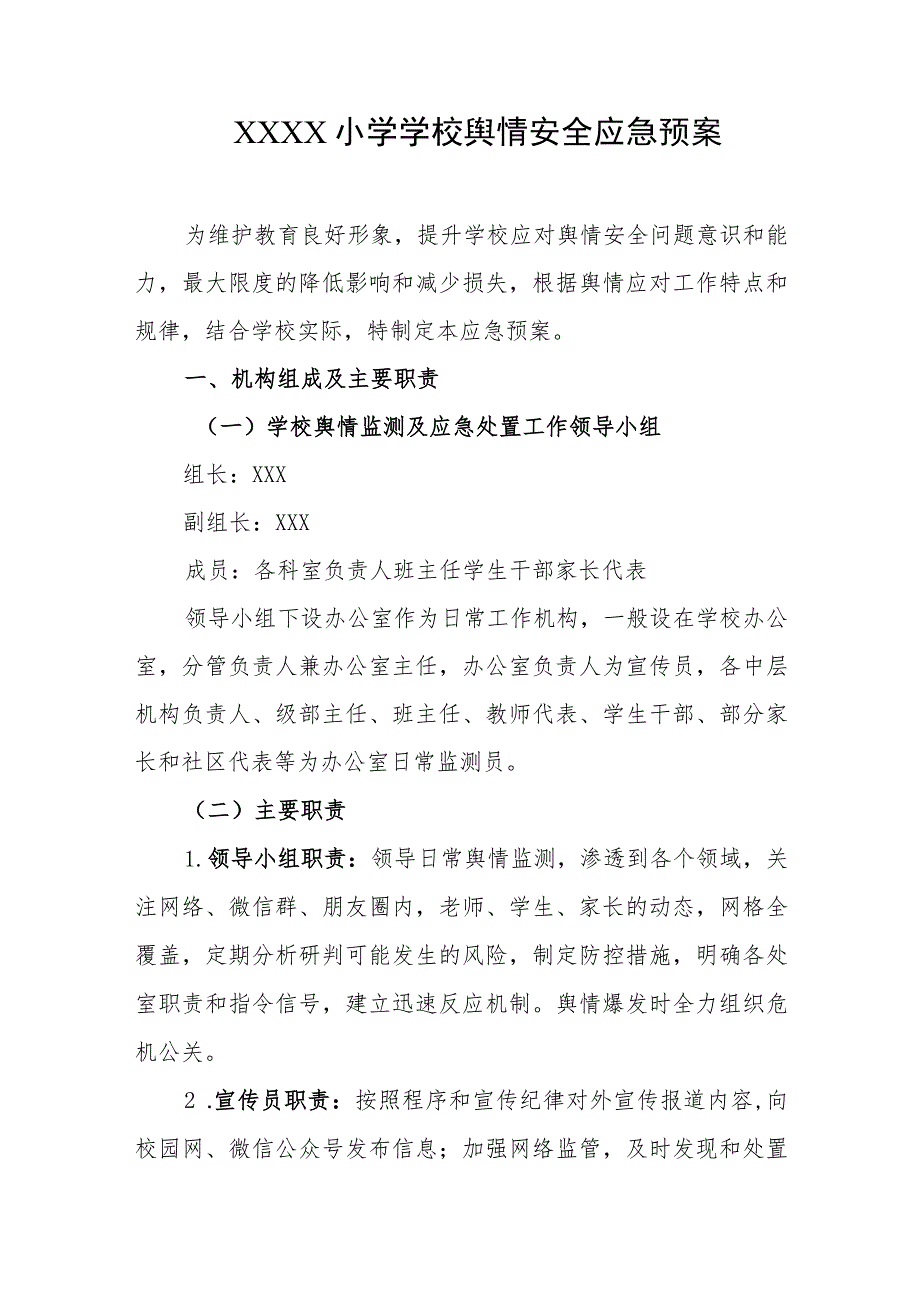 XXXX 小学学校舆情安全应急预案
为维护教育良好形象，提升学校应对舆情安全问题意识和能
力，最大限度的降低影响和减少损失，根据舆情应对工作特点和
规律，结合学校实际，特制定本应急预案。
一、机构组成及主要职责
（一）学校舆情监测及应急处置工作领导小组
组长：XXX
副组长：XXX
成员：各科室负责人班主任学生干部家长代表
领导小组下设办公室作为日常工作机构，一般设在学校办公
室，分管负责人兼办公室主任，办公室负责人为宣传员，各中层
机构负责人、级部主任、班主任、教师代表、学生干部、部分家
长和社区代表等为办公室日常监测员。
（二）主要职责
1.领导小组职责：领导日常舆情监测，渗透到各个领域，关
注网络、微信群、朋友圈内，老师、学生、家长的动态，网格全
覆盖，定期分析研判可能发生的风险，制定防控措施，明确各处
室职责和指令信号，建立迅速反应机制。舆情爆发时全力组织危
机公关。
2 .宣传员职责：按照程序和宣传纪律对外宣传报道内容,向
校园网、微信公众号发布信息；加强网络监管，及时发现和处置